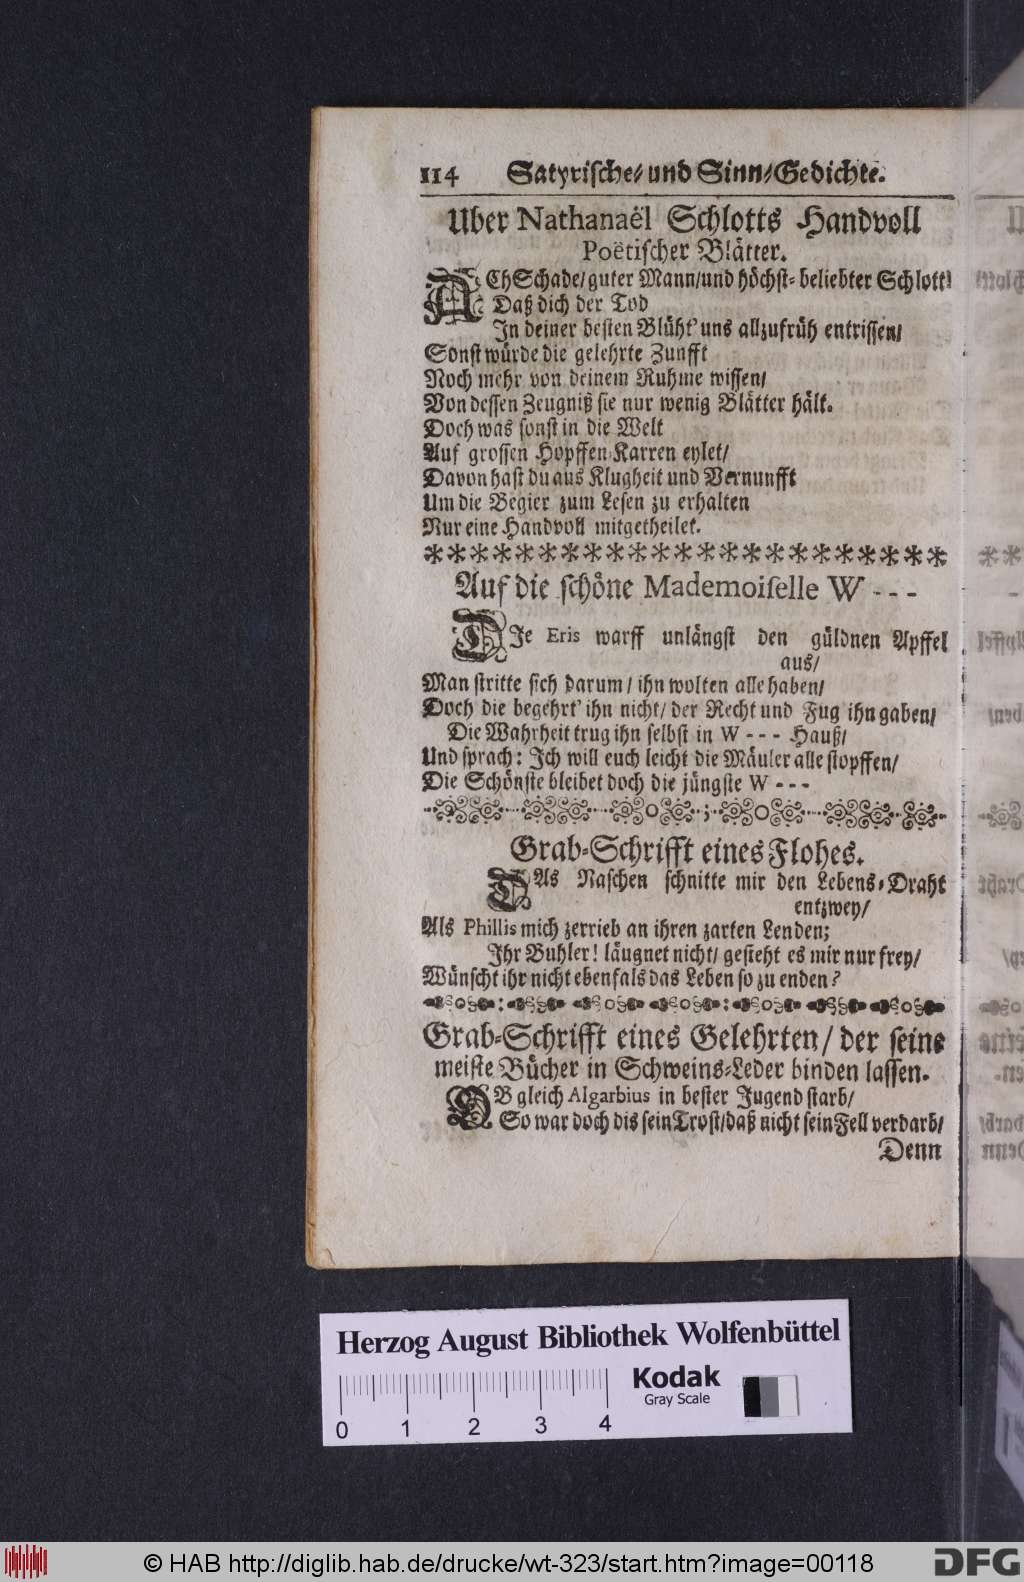 114 Satyrische/ und Sinn/Gedichte.
Uber Nathanaël Schlotts Handvoll
Poëtischer Blätter.
ACh Schade/ guter Mann/ und höchst-beliebter Schlott!
Daß dich der Tod
In deiner besten Blüht' uns allzufrüh entrissen/
Sonst würde die gelehrte Zunfft
Noch mehr von deinem Ruhme wissen/
Von dessen Zeugniß sie nur wenig Blätter hält.
Doch was sonst in die Welt
Auf grossen Hopffen-Karren eylet/
Davon hast du aus Klugheit und Vernunfft
Um die Begier zum Lesen zu erhalten
Nur eine Handvoll mitgetheilet.
Auf die schöne Mademoiselle W - - -
DIe Eris warff unlängst den güldnen Apffel
aus/
Man stritte sich darum/ ihn wolten alle haben/
Doch die begehrt' ihn nicht/ der Recht und Fug ihn gaben/
Die Wahrheit trug ihn selbst in W - - - Hauß/
Und sprach: Ich will euch leicht die Mäuler alle stopffen/
Die Schönste bleibet doch die jüngste W - - -
Grab-Schrifft eines Flohes.
DAs Naschen schnitte mir den Lebens-Draht
entzwey/
Als Phillis mich zerrieb an ihren zarten Lenden;
Ihr Buhler! läugnet nicht/ gesteht es mir nur frey/
Wünscht ihr nicht ebenfals das Leben so zu enden?
Grab-Schrifft eines Gelehrten/ der seine
meiste Bücher in Schweins-Leder binden lassen.
OB gleich Algarbius in bester Jugend starb/
So war doch dis sein Trost/ daß nicht sein Fell verdarb/
Denn
Herzog August Bibliothek Wolfenbüttel
Kodak
Gray Scale
0 1 2 3 4
© HAB http://diglib.hab.de/drucke/wt-323/start.htm?image=00118
DFG